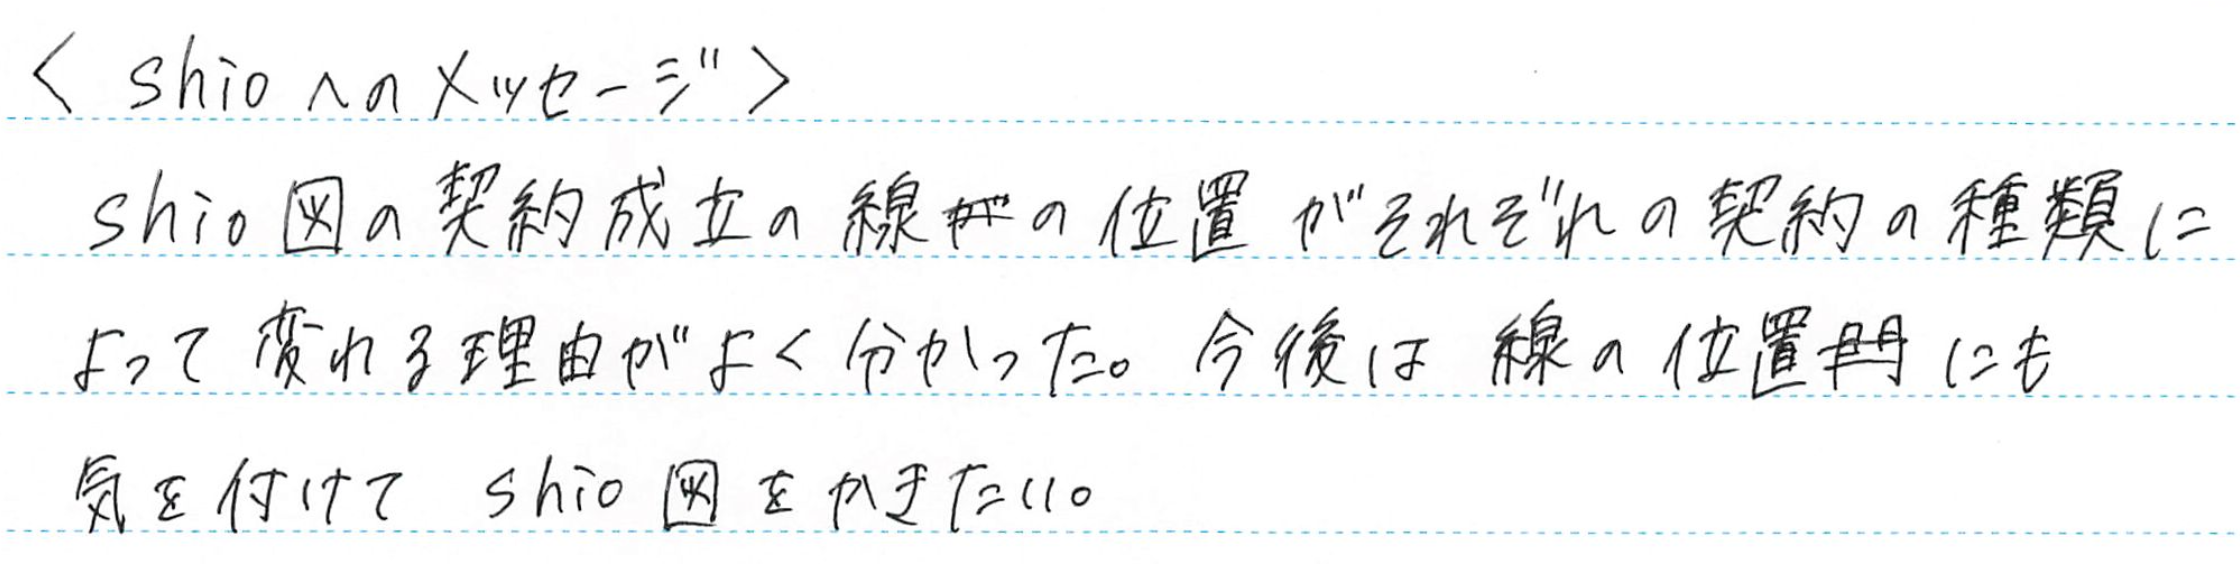 < shioへのメッセージ>
shio図の契約成立の線の位置がそれぞれの契約の種類に
よって変れる理由がよく分かった。今後は線の位置にも
気を付けて shio図をかきたい。